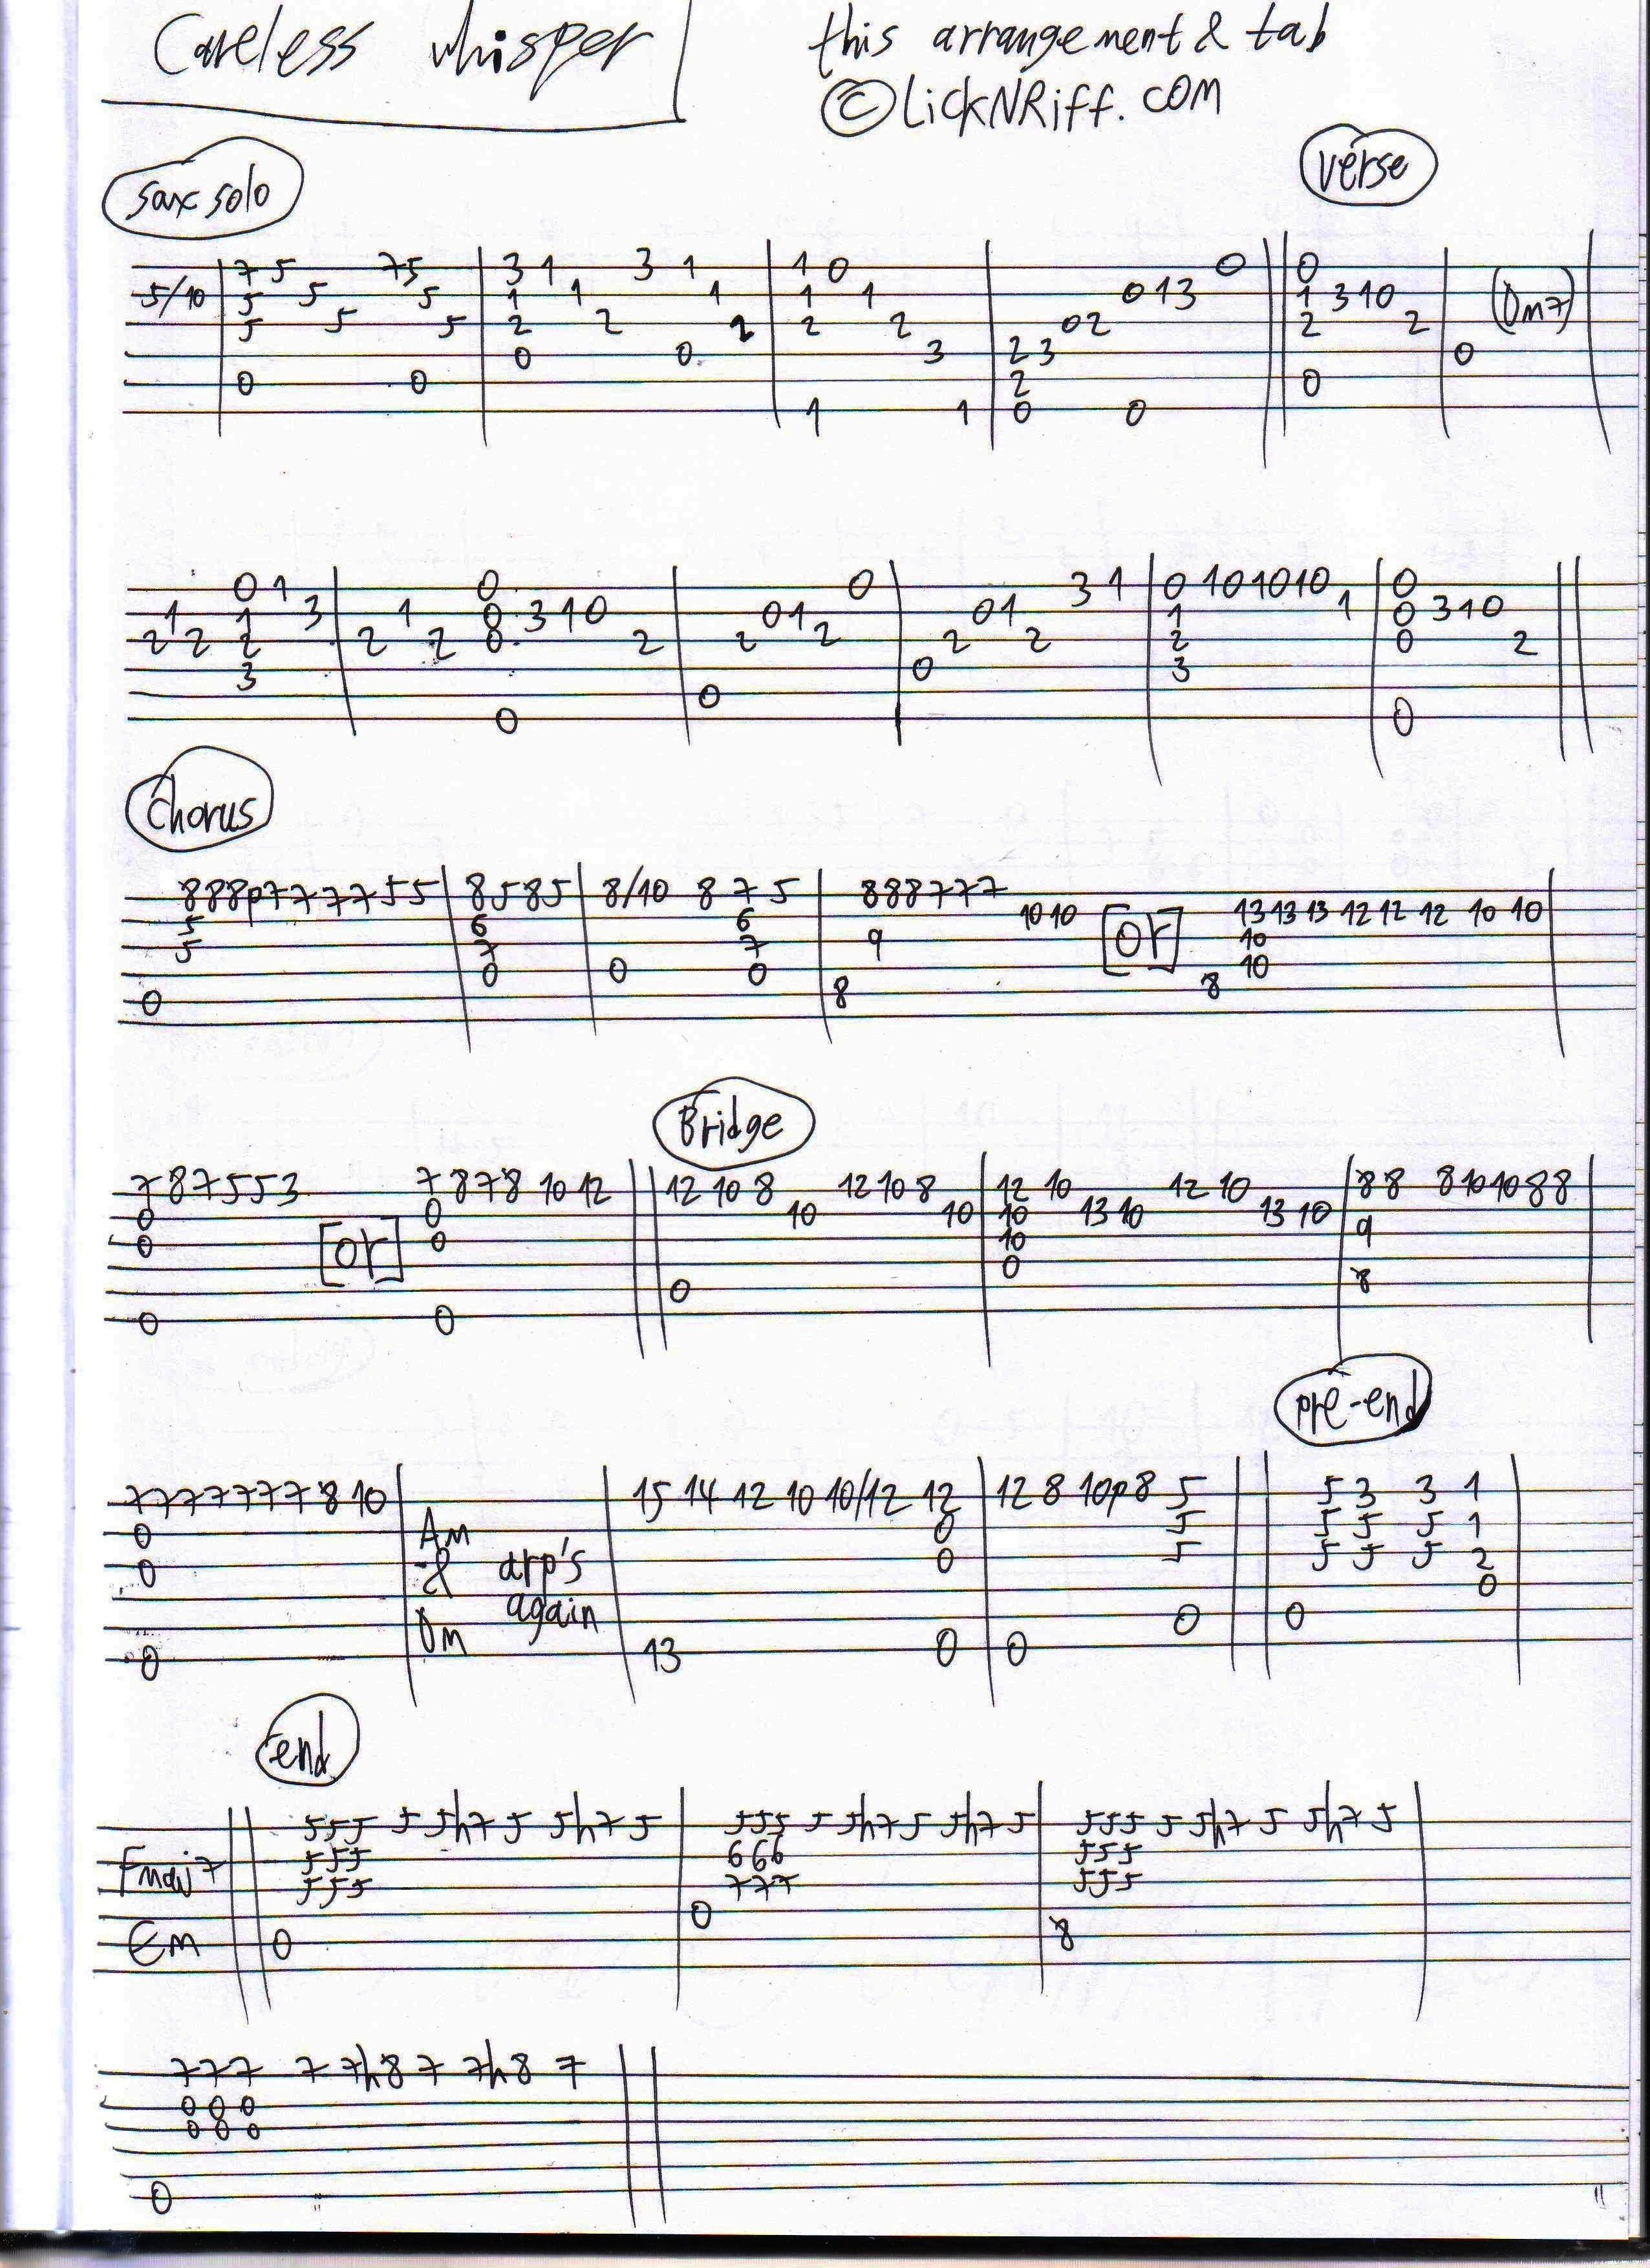 Careless whisper
this arrangement & tab
© LickNRiff.com
sax solo
verse
7 5 75 3 1 3 1 1 0 0 0
5/10 5 5 5 1 1 1 1 1 0 1 3 1 3 1 0 (Dm7)
5 5 5 2 2 2 2 2 0 2 2 2
0 0 3 2 3 0
0 0 2 0
1 1 0 0
0 1 0 0 3 1 0 10 10 10 0
1 1 3 1 0 3 1 0 0 1 0 1 1 1 0 3 1 0
2 2 2 2 2 0 2 2 2 2 2 2 0 2
3 0 3
0
0 0
Chorus
8 8 8p7 7 7 7 5 5 8 5 8 5 8/10 8 7 5 8 8 8 7 7 7
5 6 6 10 10 [or] 13 13 13 12 12 12 10 10
5 7 7 9 10
0 0 0 10
0 8 8
Bridge
7 8 7 5 5 3 7 8 7 8 10 12 12 10 8 12 10 8 12 10 12 10 8 8 8 10 10 8 8
0 [or] 0 10 10 10 13 10 13 10 9
0 0 10
0
0 8
0 0
pre-end
7 7 7 7 7 7 7 8 10 15 14 12 10 10/12 12 12 8 10p8 5 5 3 3 1
0 Am 0 5 5 5 5 1
0 & arp's 0 5 5 5 5 2
again 0
Dm 0 0
0 13 0 0
end
5 5 5 5 5h7 5 5h7 5 5 5 5 5 5h7 5 5h7 5 5 5 5 5 5h7 5 5h7 5
Fmaj7 5 5 5 6 6 6 5 5 5
5 5 5 7 7 7 5 5 5
0
Em 0 8
7 7 7 7 7h8 7 7h8 7
0 0 0
0 0 0
0